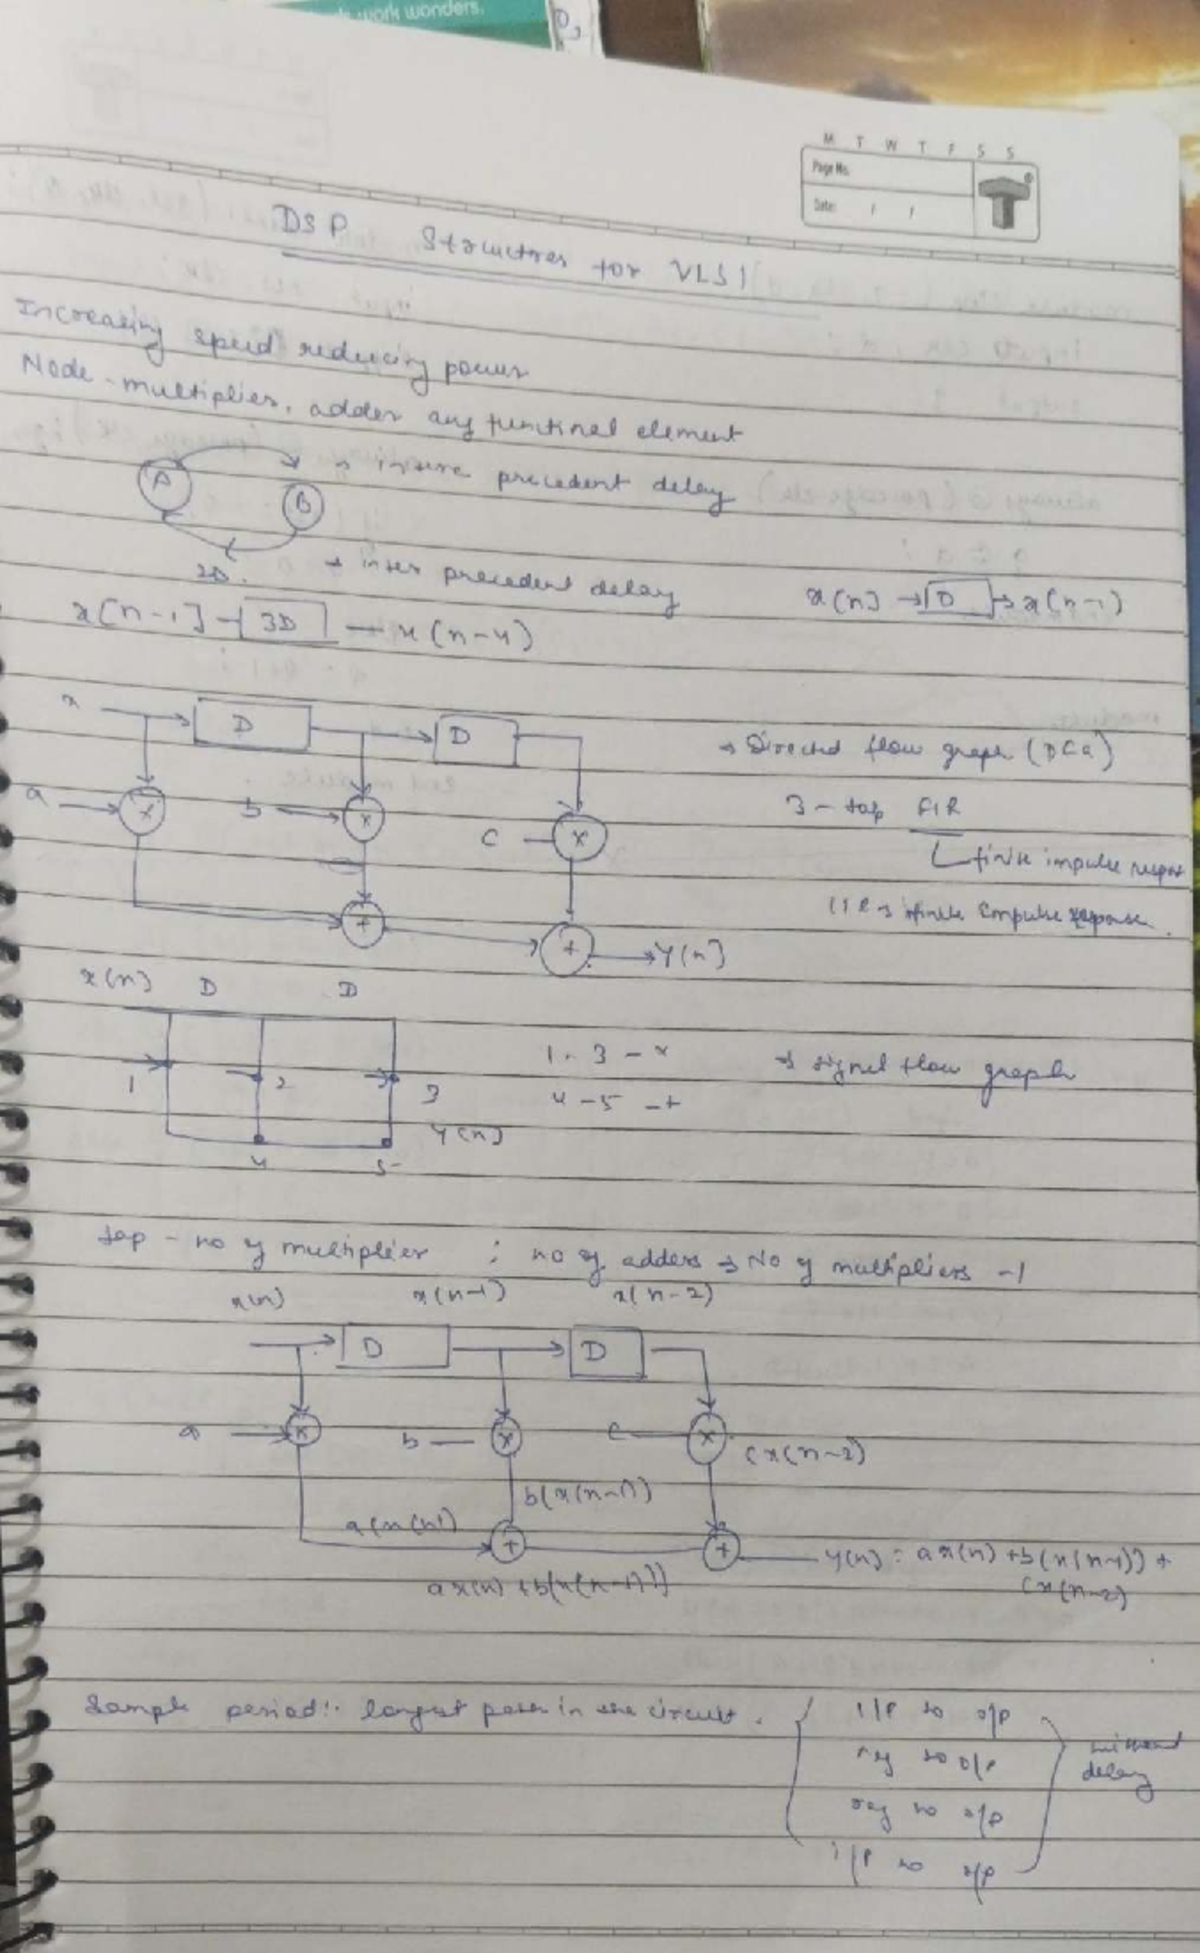 work wonders.
M T W T F S S
Page No.
Date: / /
DSP Structres for VLSI
Increasing speed reducing power
Node - multiplier, adder any funtinal element
A B → intra precedent delay
2D. → inter precedent delay
x(n) → D → x(n-1)
x(n-1) - 3D - x(n-4)
x D D
→ Directed flow graph
a x b x c x
3 - tap FIR
finite impulse
IIR → infinite impulse response.
+ + Y(n)
x(n) D D
1 2 3
1 - 3 - x
→ signal flow graph
4 - 5 - +
Y(n)
4 5
tap - no of multiplier ; no of adders → No of multipliers -1
x(n) x(n-1) x(n-2)
D D
a x b x c x cx(n-2)
b(x(n-1))
a(x(n))
+ + y(n) = ax(n) + b(x(n-1)) +
cx(n-2)
ax(n) + b(x(n-1))
Sample period: longest path in the circuit.
i/p to o/p
reg to o/p
reg to o/p
i/p to o/p
without
delay